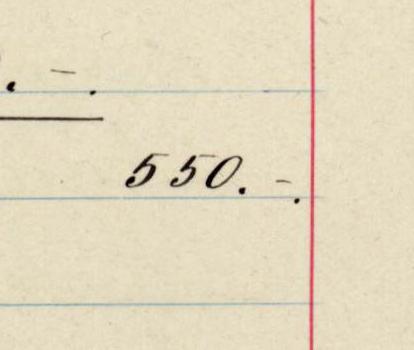 . -.
550. -.